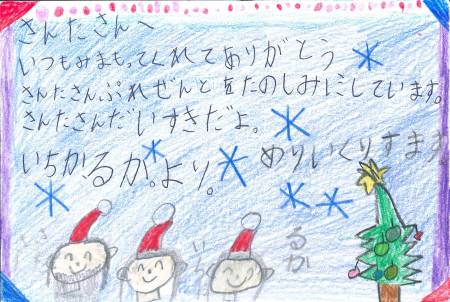 さんたさんへ
いつもみまもってくれてありがとう
さんたさん。ぷれぜんとをたのしみにしています。
さんたさんだいすきだよ。
いちかるか。より。
めりいくりすます
いち
るか